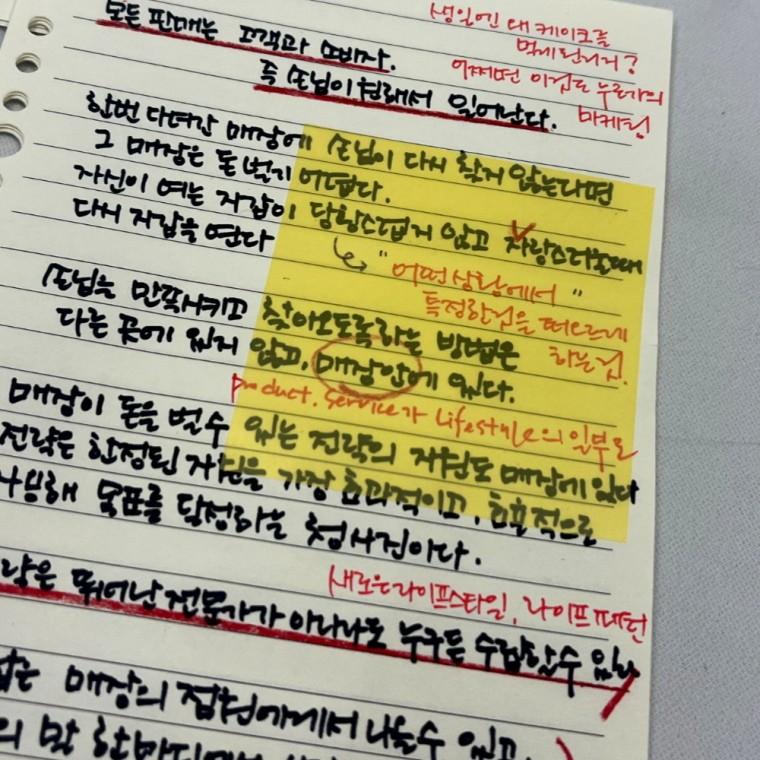 생일엔 왜 케이크를
먹게 된거지?
어쩌면 이것도 누군가의
마케팅
모든 판매는 고객과 소비자.
즉 손님이 원해서 일어난다.
한번 다녀간 매장에 손님이 다시 찾지 않는다면
그 매장은 돈 벌기 어렵다.
자신이 여는 지갑이 당황스럽지 않고 자랑스러울때
다시 지갑을 연다
"어떤 상황에서"
특정한것을 떠오르게
하는것.
손님을 만족시키고 찾아오도록하는 방법은
다른 곳에 있지 않고, 매장안에 있다.
product. Service가 Lifestyle의 일부로
매장이 돈을 벌수 있는 전략의 자원도 매장에 있다
전략은 한정된 자원을 가장 효과적이고, 효율적으로
목표를 달성하는 청사진이다.
새로운 라이프스타일, 라이프 패턴
뛰어난 전문가가 아니라도 누구든 수립할수 있다
매장의 점원에게서 나올수 있고
의 말 한마디에